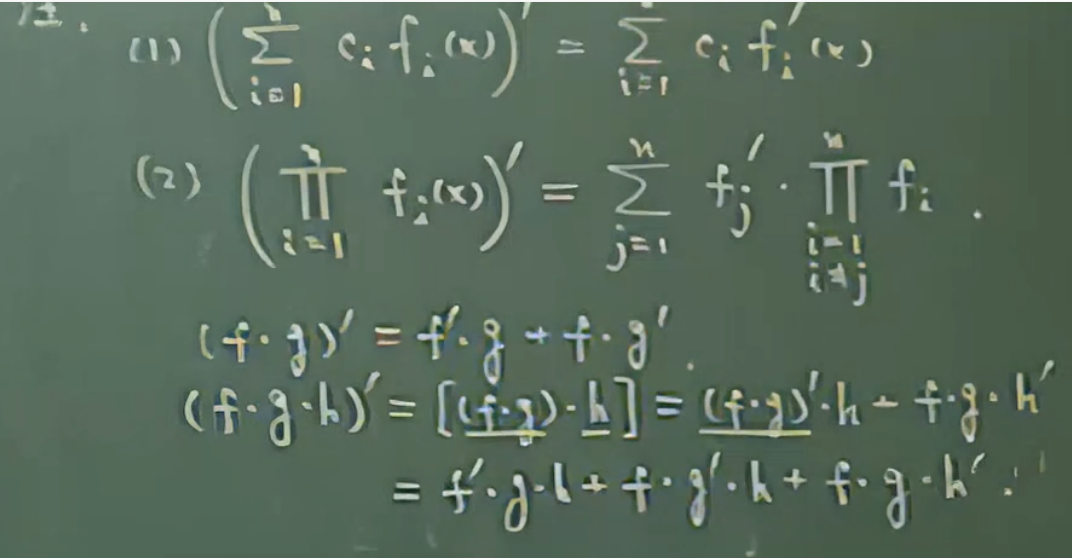 注.
(1) (∑_{i=1}^{n} c_i f_i(x))' = ∑_{i=1}^{n} c_i f_i'(x)
(2) (∏_{i=1}^{n} f_i(x))' = ∑_{j=1}^{n} f_j' · ∏_{i=1, i≠j}^{n} f_i .
(f·g)' = f'·g + f·g' .
(f·g·h)' = [(f·g)·h] = (f·g)'·h + f·g·h'
= f'·g·h + f·g'·h + f·g·h' .